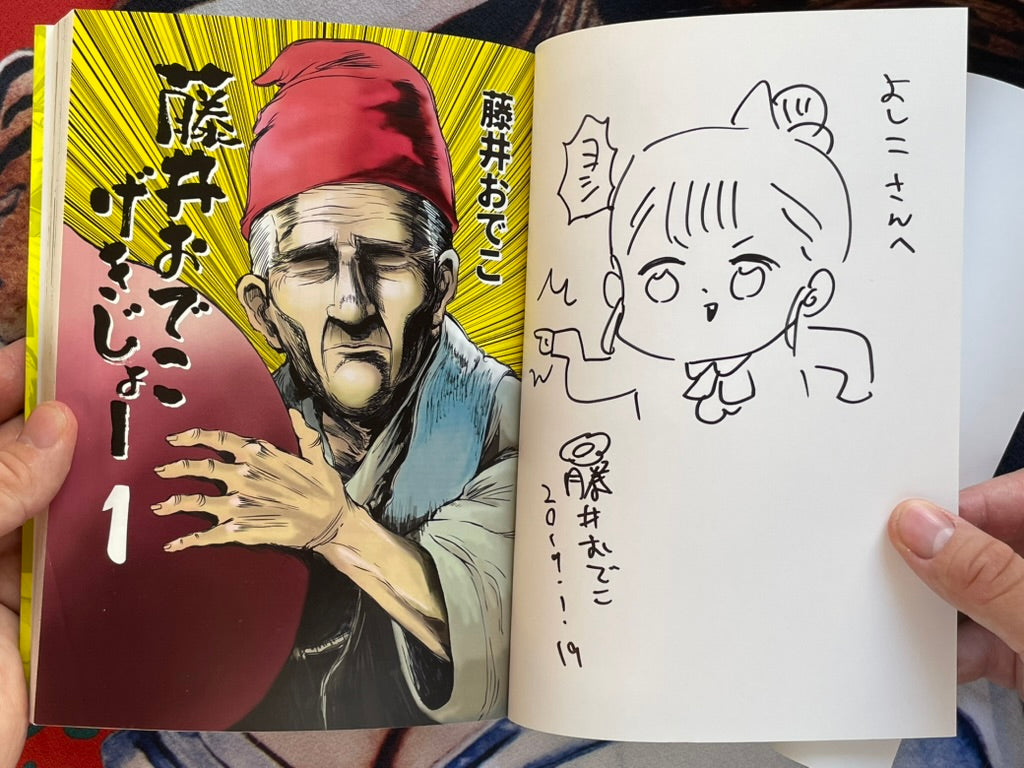 よしこさんへ
ヨシ
藤井おでこ
2019.1.19
藤井おでこ
藤井おでこ
げきじょー
1